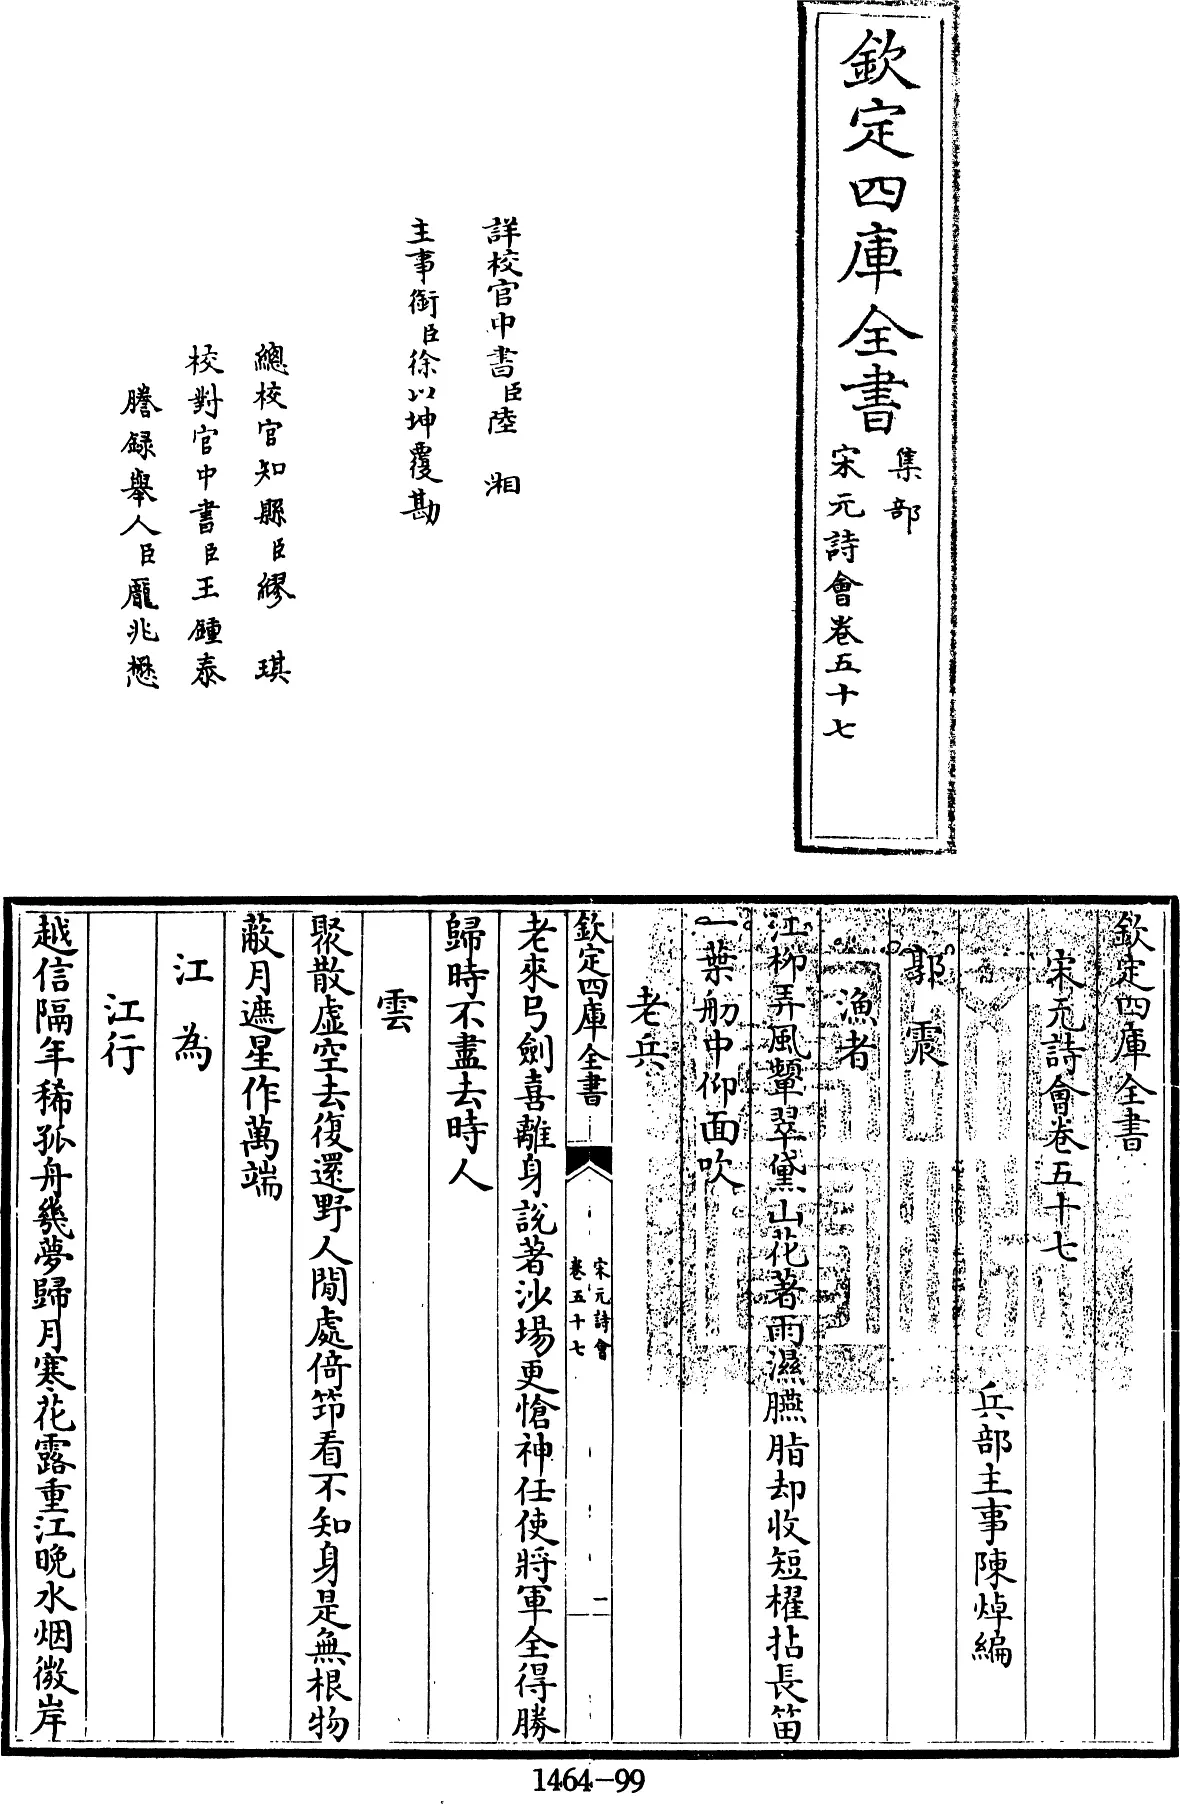 欽定四庫全書
集部
宋元詩會卷五十七
詳校官中書臣陸湘
主事銜臣徐以坤覆勘
總校官知縣臣繆琪
校對官中書臣王鍾泰
謄録舉人臣龎兆懋
欽定四庫全書
宋元詩會卷五十七
兵部主事陳焯編
郭震
漁者
江柳弄風顰翠黛山花著雨濕臙脂却收短櫂拈長笛
一葉舠中仰面吹
老兵
欽定四庫全書
宋元詩會
卷五十七
一
老來弓劍喜離身說著沙場更愴神任使將軍全得勝
歸時不盡去時人
雲
聚散虛空去復還野人閒處倚筇看不知身是無根物
蔽月遮星作萬端
江為
江行
越信隔年稀孤舟幾夢歸月寒花露重江晩水烟微岸
1464-99